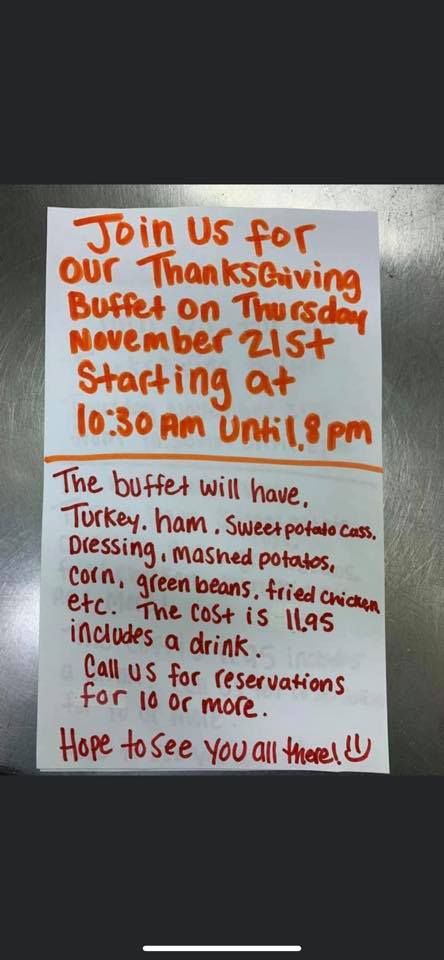 Join Us for
our ThanksGiving
Buffet on Thursday
November 21st
Starting at
10:30 Am Until 8 pm
The buffet will have,
Turkey. ham. Sweet potato Cass.
Dressing. mashed potatos,
Corn. green beans. fried chicken
etc. The cost is 11.95
includes a drink.
Call us for reservations
for 10 or more.
Hope to see you all there!